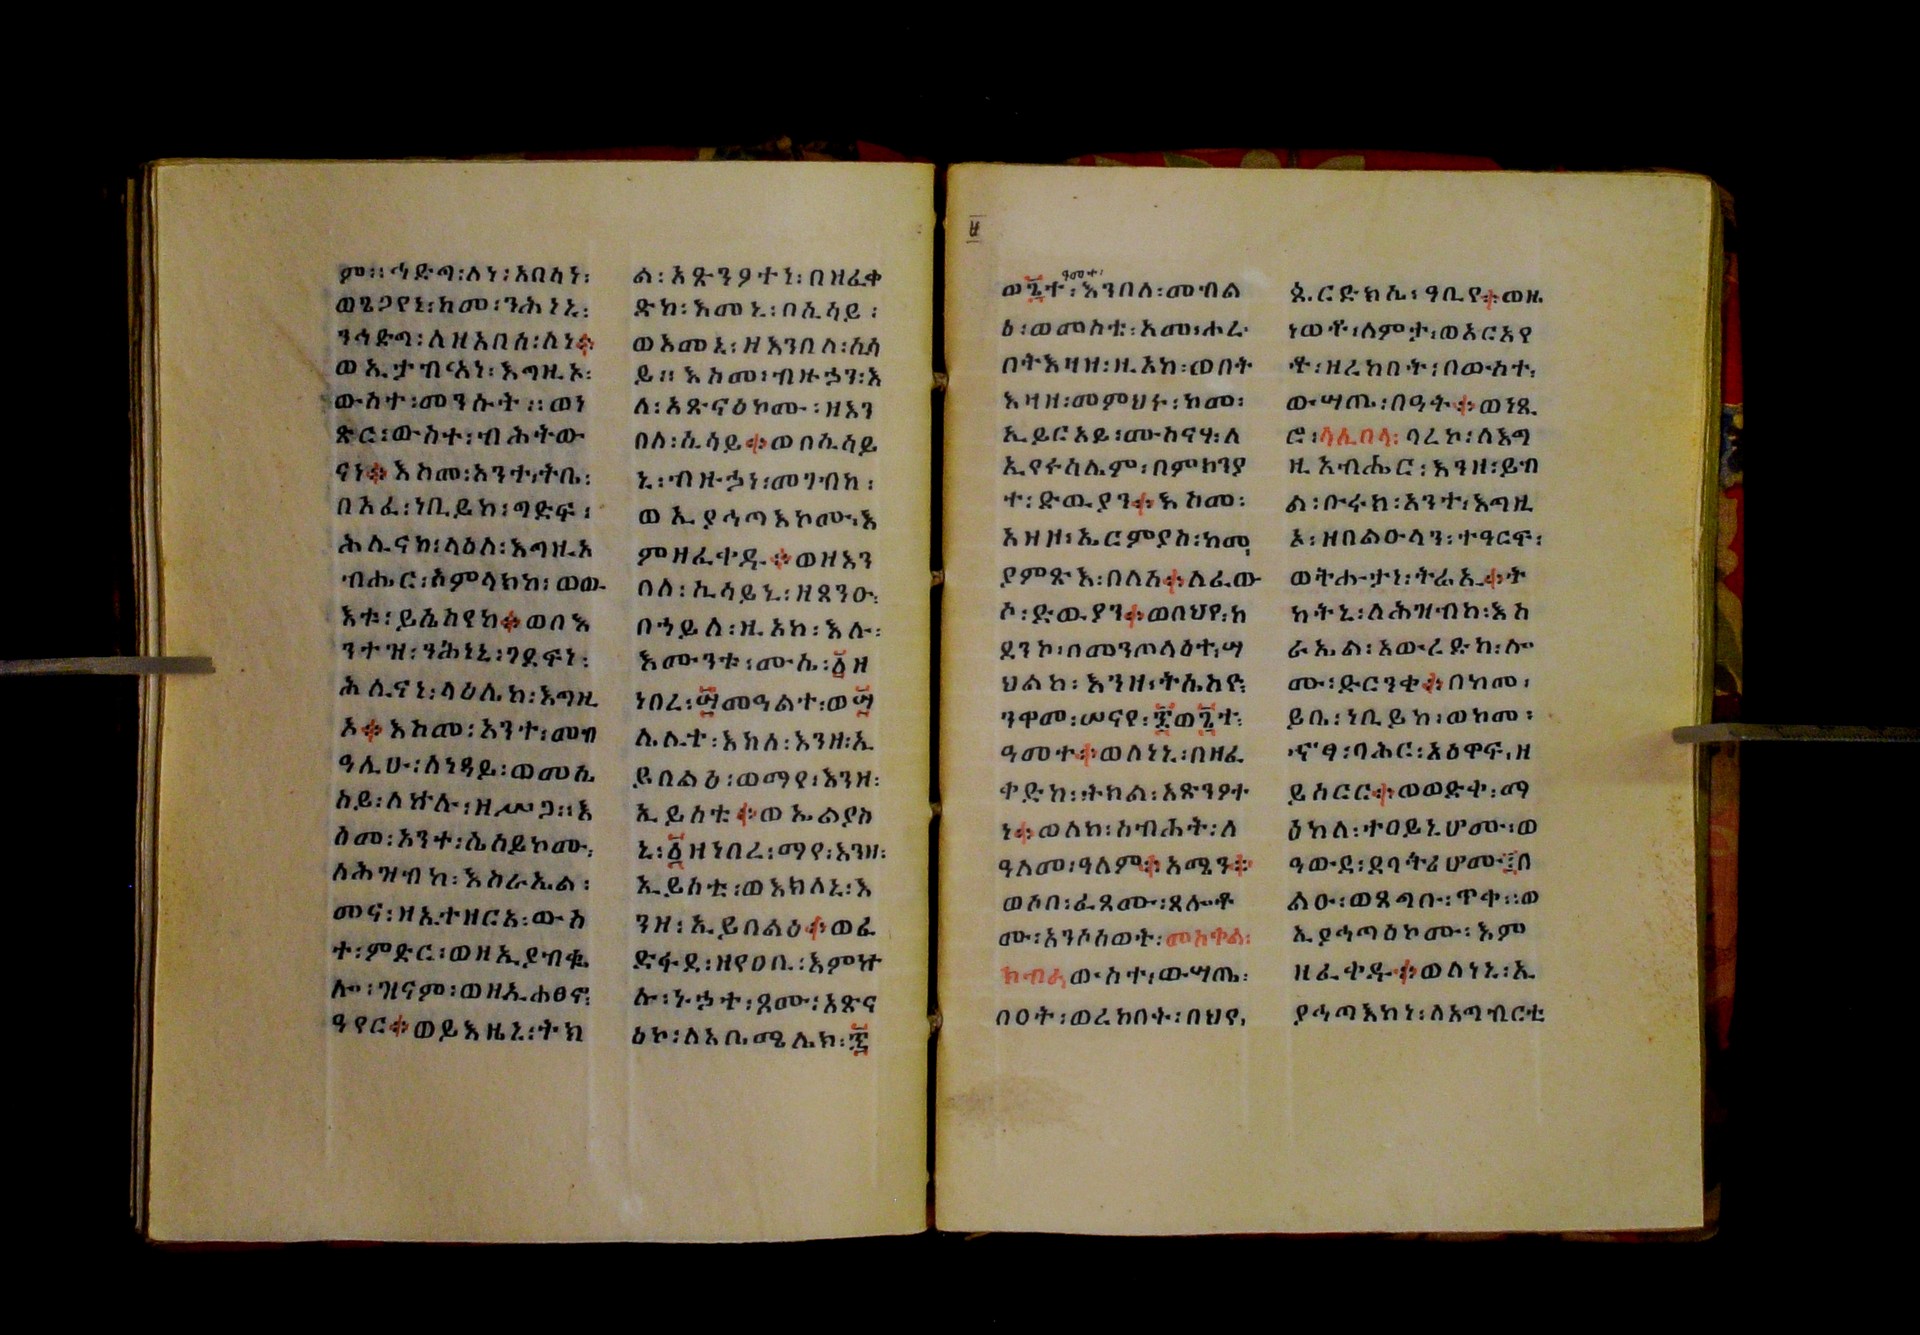 ም። ኅድግ፡ ለነ፡ አበሳነ፡
ወጌጋየነ፡ ከመ፡ ንሕነኒ፡
ንኅድግ፡ ለዘአበሰ፡ ለነ፨
ወኢታብኣነ፡ እግዚኦ፡
ውስተ፡ መንሱት። ወነ
ጽር፡ ውስተ፡ ብሕትው
ናነ፨ እስመ፡ አንተ፡ ትቤ፡
በአፈ፡ ነቢይከ፡ ግድፍ፡
ሕሊናከ፡ ላዕለ፡ እግዚአ
ብሔር፡ አምላክከ፡ ወው
እቱ፡ ይሴስየከ፨ ወበእ
ንተዝ፡ ንሕነኒ፡ ገደፍነ፡
ሕሊናነ፡ ላዕሌከ፡ እግዚ
ኦ፨ እስመ፡ አንተ፡ መብ
ዓሊሁ፡ ለነዳይ፡ ወመሴ
ስይ፡ ለኵሉ፡ ዘሥጋ። እ
ስመ፡ አንተ፡ ሴሰይኮሙ፡
ለሕዝብከ፡ እስራኤል፡
መና፡ ዘኢተዘርአ፡ ውስ
ተ፡ ምድር፡ ወዘኢያብቈ
ሎ፡ ዝናም፡ ወዘኢሐፀኖ፡
ዓየር፨ ወይእዜኒ፡ ትክ
ል፡ አጽንዖተነ፡ በዘፈቀ
ድከ፡ እመኒ፡ በሲሳይ፡
ወእመኒ፡ ዘእንበለ፡ ሲሳ
ይ። እስመ፡ ብዙኃን፡ እ
ለ፡ አጽናዕኮሙ፡ ዘእን
በለ፡ ሲሳይ፨ ወበሲሳይ
ኒ፡ ብዙኃነ፡ መገብከ፡
ወኢያኅጣእኮሙ፡ እ
ምዘፈቀዱ፨ ወዘእን
በለ፡ ሲሳይኒ፡ ዘጸንዑ፡
በኀይለ፡ ዚአከ፡ እሉ፡
እሙንቱ፡ ሙሴ፡ ፩ዘ
ነበረ፡ ፵መዓልተ፡ ወ፵
ሌሊተ፡ እክለ፡ እንዘ፡ ኢ
ይበልዕ፡ ወማየ፡ እንዘ፡
ኢይስቲ፨ ወኤልያስ
ኒ፡ ፩ዘነበረ፡ ማየ፡ እንዘ፡
ኢይስቲ፡ ወእክለኒ፡ እ
ንዘ፡ ኢይበልዕ፨ ወፈ
ድፋደ፡ ዘየዐቢ፡ እምኵ
ሉ፡ ኑኃተ፡ ጾሙ፡ አጽና
ዕኮ፡ ለአቤሜሌክ፡ ፷
፭
ዓመተ፡
ወ፯ተ፡ እንበለ፡ መብል
ዕ፡ ወመስቴ፡ አመ፡ ሖረ
በትእዛዘ፡ ዚአከ፡ ወበት
እዛዘ፡ መምህሩ፡ ከመ፡
ኢይርአይ፡ ሙስናሃ፡ ለ
ኢየሩሳሌም፡ በምክንያ
ተ፡ ድዉያን፨ እስመ፡
አዘዘ፡ ኤርምያስ፡ ከመ
ያምጽእ፡ በለሰ፨ ለፈው
ሶ፡ ድዉያን፨ ወበህየ፡ ከ
ደንኮ፡ በመንጦላዕተ፡ ሣ
ህልከ፡ እንዘ፡ ትሬእዮ፡
ንዋመ፡ ሠናየ፡ ፷ወ፯ተ፡
ዓመተ፨ ወለነኒ፡ በዘፈ
ቀድከ፡ ትክል፡ አጽንዖተ
ነ፨ ወለከ፡ ስብሐት፡ ለ
ዓለመ፡ ዓለም፨ አሜን፨
ወሶበ፡ ፈጸሙ፡ ጸሎቶ
ሙ፡ አንሶሰወት፡ መስቀል፡
ክብራ፡ ውስተ፡ ውሣጤ፡
በዐት፡ ወረከበት፡ በህየ፡
ጳርድክሌ፡ ዓቢየ፨ ወዜ
ነወቶ፡ ለምታ፡ ወአርአየ
ቶ፡ ዘረከበት፡ በውስተ፡
ውሣጤ፡ በዓት፨ ወነጺ
ሮ፡ ላሊበላ፡ ባረኮ፡ ለእግ
ዚአብሔር፡ እንዘ፡ ይብ
ል፡ ቡሩክ፡ አንተ፡ እግዚ
ኦ፡ ዘበልዑላን፡ ተዓርፍ፡
ወትሑታነ፡ ትሬኢ፨ ት
ከትኒ፡ ለሕዝብከ፡ እስ
ራኤል፡ አውረድከ፡ ሎ
ሙ፡ ድርንቂ፨ በከመ፡
ይቤ፡ ነቢይከ፡ ወከመ፡
ኖፃ፡ ባሕር፡ አዕዋፍ፡ ዘ
ይሰርር፨ ወወድቀ፡ ማ
ዕከለ፡ ተዐይኒሆሙ፡ ወ
ዓውደ፡ ደባትሪሆሙ፨ በ
ልዑ፡ ወጸግቡ፡ ጥቀ። ወ
ኢያኅጣዕኮሙ፡ እም
ዘፈቀዱ፨ ወለነኒ፡ ኢ
ያኅጣእከነ፡ ለአግብርቲ